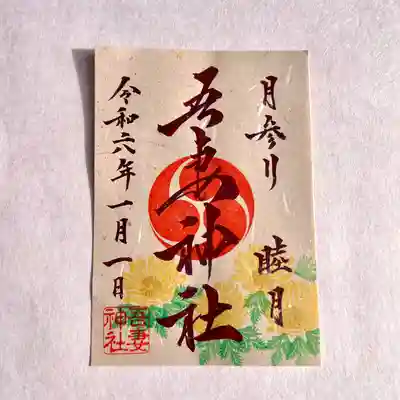 月参り 睦月
吾妻神社
令和六年一月一日
吾妻
神社